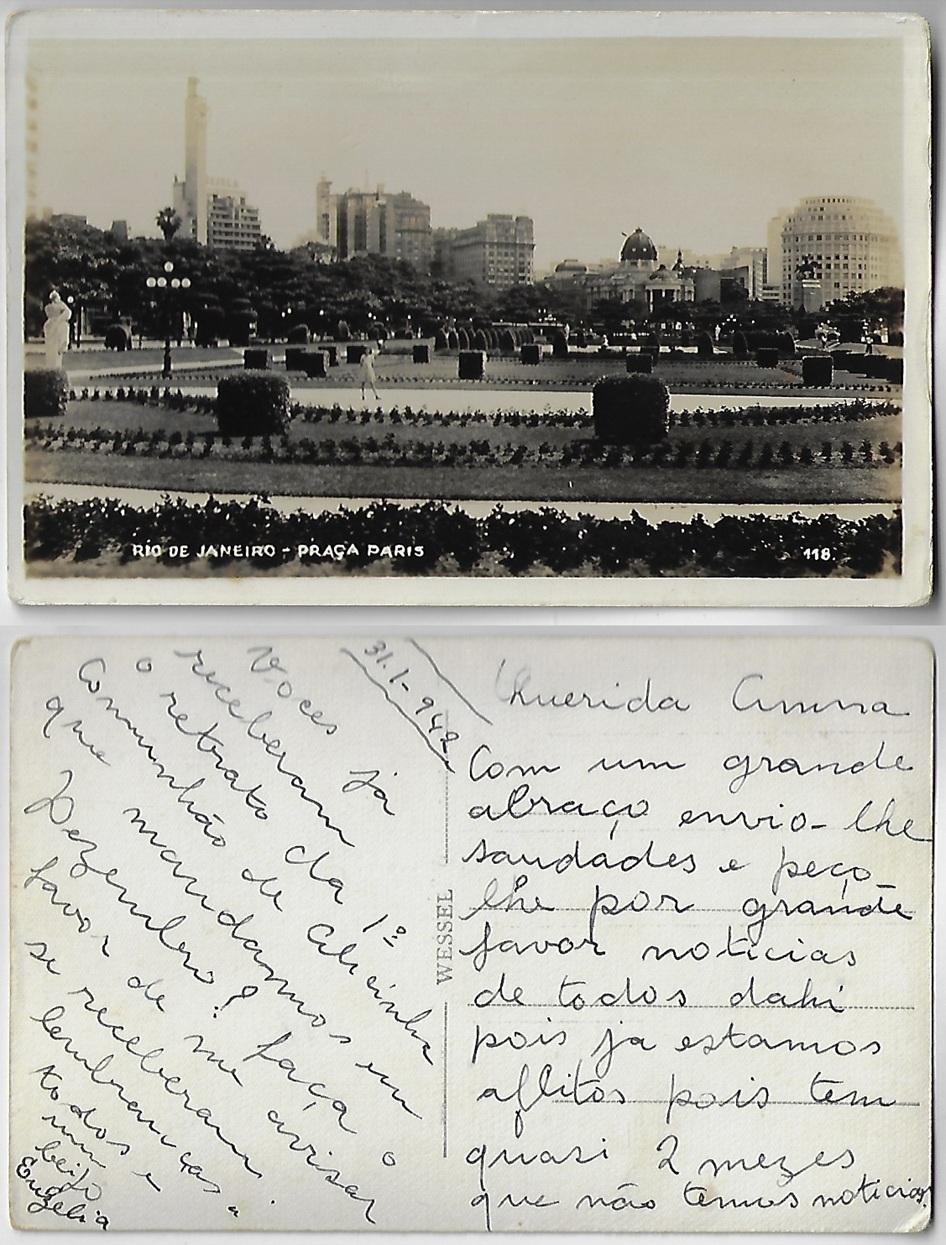 RIO DE JANEIRO - PRAÇA PARIS
118.
31.1-942
Querida Amma
Com um grande
abraço envio-lhe
saudades e peço
lhe por grande
favor noticias
de todos dahi
pois ja estamos
aflitos pois tem
quasi 2 mezes
que não temos noticias.
WESSEL
Voces já
receberam
o retrato da 1º
Communhão de Alicinha
que mandamos em
Dezembro? faça o
favor de me avisar
se receberam.
lembranças a
todos e
um
beijo
Eugelia